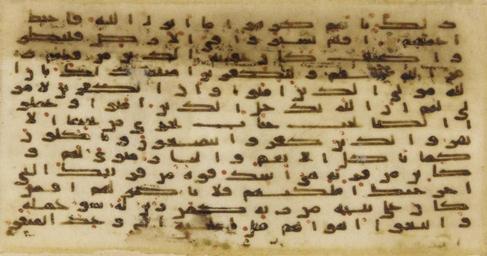 ذلك بانهم كرهوا ما انزل الله فاحبط
اعملهم افلم يسيروا في الارض فينظر
وا كيف كان عقبة الذين من قبلهم د
مر الله عليهم وللكفرين امثلها ذلك بان ا
لله مولى الذين امنوا وان الكفرين لا مو
لى لهم ان الله يدخل الذين امنوا وعملو
ا الصلحت جنت تجري من تحتها الا
نهر والذين كفروا يتمتعون وياكلون
كما تاكل الانعم والنار مثوى لهم و
كاين من قرية هي اشد قوة من قريتك التي
اخرجتك اهلكنهم فلا ناصر لهم افمن
كان على بينة من ربه كمن زين له سو عمله
واتبعوا اهواهم مثل الجنة التي وعد المتقو